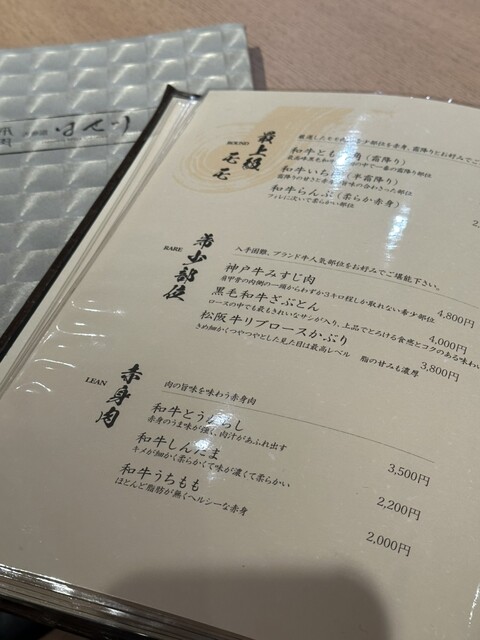 最上級モモ
ROUND
和牛いち（半霜降り）
霜降りの甘さと赤身の旨味の合わさった部位
和牛らんぷ（柔らか赤身）
フィレに次いで柔らかい部位
希少部位
RARE
入手困難、ブランド牛人気部位をお好みでご堪能下さい。
神戸牛みすじ肉
肩甲骨の内側の一頭からわずか3キロ程しか取れない希少部位
4,800円
黒毛和牛ざぶとん
ロースの中でも最もきれいなサシが入り、上品でとろける食感とコクのある味わい
4,000円
松阪牛リブロースかぶり
きめ細かくつやつやとした見た目は最高レベル 脂の甘みも濃厚
3,800円
赤身肉
LEAN
肉の旨味を味わう赤身肉
和牛とうがらし
赤身のうま味が強く、肉汁があふれ出す
3,500円
和牛しんたま
キメが細かく柔らかくて味が濃くて柔らかい
2,200円
和牛うちもも
ほとんど脂肪が無くヘルシーな赤身
2,000円